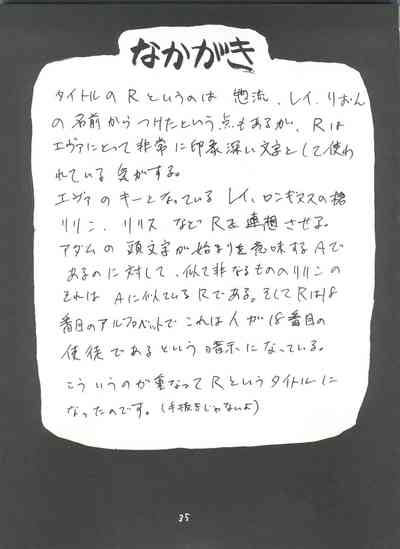 なかがき
タイトルの R というのは 惣流、レイ、りおん
の 名前 から つけた という 点も あるが、 R は
エヴァにとって 非常 に 印象 深い 文字 として 使わ
れている 気がする。
エヴァ の キー となっている レイ、ロンギヌスの槍
リリン、リリス など R を 連想 させる。
アダム の 頭文字 が 始まりを 意味 する A で
あるのに 対して、似て 非なる ものの リリンの
それは A に似ている R である。そして R は18
番目の アルファベットで これは 人 が 18番目の
使徒 であるという 暗示 に なっている。
こういうのが 重なって R という タイトル に
なったのです。(手抜きじゃないよ)
35